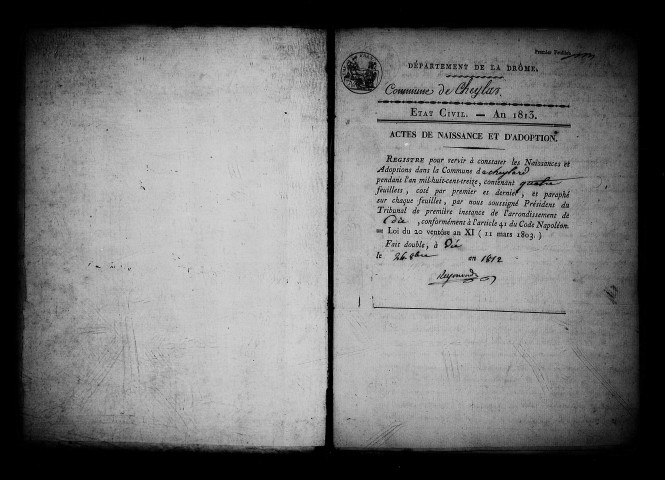 Premier Feuillet
DÉPARTEMENT DE LA DRÔME.
Commune de Cheylar.
ETAT CIVIL. — AN 1813.
ACTES DE NAISSANCE ET D'ADOPTION.
REGISTRE pour servir à constater les Naissances et
Adoptions dans la Commune d u cheylard
pendant l'an mil-huit-cent-treize, contenant quatre
feuillets, coté par premier et dernier, et paraphé
sur chaque feuillet, par nous soussigné Président du
Tribunal de première instance de l'arrondissement de
Die, conformément à l'article 41 du Code Napoléon.
= Loi du 20 ventôse an XI ( 11 mars 1803. )
Fait double, à Die
le 26 8bre en 1812
Reymond